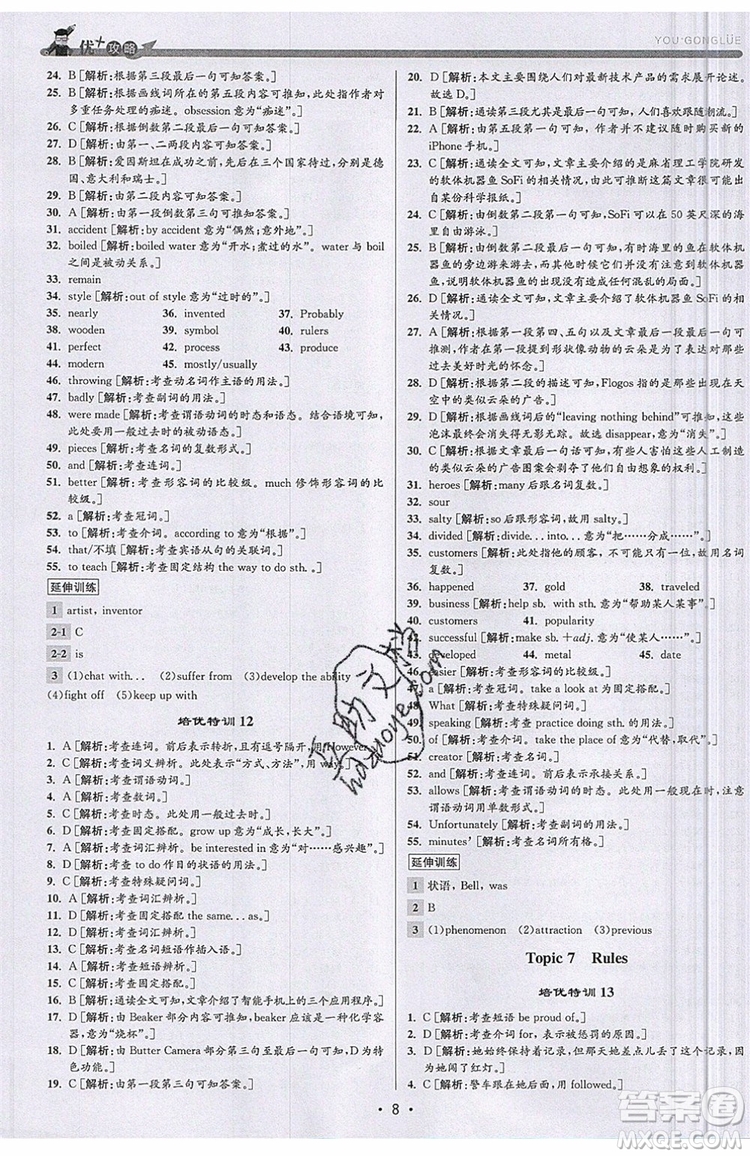 优+攻略
YOU·GONGLÜE
24. B [解析:根据第三段最后一句可知答案。]
25. B [解析:根据画线词所在的第五段内容可知,此处指作者对
多重任务处理的痴迷。obsession 意为“痴迷”。]
26. C [解析:根据倒数第二段最后一句可知答案。]
27. D [解析:由第一、二两段内容可知答案。]
28. B [解析:爱因斯坦在成功之前,先后在三个国家待过,分别是德
国、意大利和瑞士。]
29. B [解析:由第一段第三句可知答案。]
30. A [解析:由第一段倒数第三句可推知答案。]
31. accident [解析:by accident 意为“偶然;意外地”。]
32. boiled [解析:boiled water 意为“开水;煮过的水”。water 与 boil
之间是被动关系。]
33. remain
34. style [解析:out of style 意为“过时的”。]
35. nearly 36. invented 37. Probably
38. wooden 39. symbol 40. rulers
41. perfect 42. process 43. produce
44. modern 45. mostly/usually
46. throwing [解析:考查动名词作主语的用法。]
47. badly [解析:考查副词的用法。]
48. were made [解析:考查谓语动词的时态和语态。结合语境可知,
此处用一般过去时的被动语态。]
49. pieces [解析:考查名词的复数形式。]
50. and [解析:考查连词。]
51. better [解析:考查形容词的比较级。much 修饰形容词的比
较级。]
52. a [解析:考查冠词。]
53. to [解析:考查介词。according to 意为“根据”。]
54. that/不填 [解析:考查宾语从句的关联词。]
55. to teach [解析:考查固定结构 the way to do sth.。]
延伸训练
1 artist, inventor
2-1 C
2-2 is
3 (1)chat with... (2)suffer from (3)develop the ability
(4)fight off (5)keep up with
培优特训 12
1. A [解析:考查连词。前后表示转折,且有逗号隔开,用 However。]
2. C [解析:考查词义辨析。此处表示“方式、方法”,用 way。]
3. A [解析:考查谓语动词。]
4. A [解析:考查数词。]
5. C [解析:考查时态。此处用一般过去时。]
6. B [解析:考查固定搭配。grow up 意为“成长,长大”。]
7. C [解析:考查词汇辨析。be interested in 意为“……感兴趣”。]
8. B [解析:考查 to do 作目的状语的用法。]
9. C [解析:考查特殊疑问词。]
10. A [解析:考查词汇辨析。]
11. D [解析:考查固定搭配 the same...as。]
12. D [解析:考查词汇辨析。]
13. B [解析:考查名词短语作插入语。]
14. C [解析:考查短语辨析。]
15. A [解析:考查固定搭配。]
16. B [解析:通读全文可知,文章介绍了智能手机上的三个应用程序。]
17. D [解析:由 Beaker 部分第一句可知,beaker 应该是一种化学容
器,意为“烧杯”。]
18. D [解析:由 Butter Camera 部分第三句及最后一句可知,D 为特
色功能。]
19. C [解析:由第一段第三句可知答案。]
20. D [解析:本文主要围绕人们对最新技术产品的需求展开论述。
故选 D。]
21. B [解析:通读第三段尤其是最后一句可知,人们喜欢跟随潮流。]
22. A [解析:由第一段第一句可知,作者并不知道何时购买新的
iPhone 手机。]
23. C [解析:通读全文可知,文章主要介绍的是麻省理工学院研发
的软体机器鱼 SoFi 的相关情况,由此推知这篇文章可能出
自某份科学报刊。]
24. C [解析:由倒数第二段第一句可知,SoFi 可以在 50 英尺深的海
里自由游泳。]
25. B [解析:由倒数第二段最后一句可知,有时海里的鱼在软体机
器鱼的旁边游来游去,这说明软体机器鱼的出现在海底的生
物中没有造成任何混乱的局面。]
26. D [解析:通读全文可知,文章主要介绍了软体机器鱼 SoFi 的相
关情况。]
27. A [解析:根据第一段第一句及第四、五句以及第二段第一句可
推测,作者在第一段提到了形状像动物的云朵是为了表达对
过去美好时光的怀念。]
28. D [解析:根据第二段的描述可知,Flogos 指的是广告飘在天
空中的类似云朵的泡沫。]
29. D [解析:根据画线词后的“leaving nothing behind”可知,这些
泡沫最终消失得无影无踪。故选 disappear,意为“消失”。]
30. C [解析:根据最后一段第二句话可知,有些人害怕这些人工制造
的类似云朵的广告图案会剥夺了他们自由想象的权利。]
31. heroes [解析:many 后跟名词复数。]
32. sour
33. salty [解析:so 后跟形容词,故用 salty。]
34. divided [解析:divide...into...意为“把……分成……”。]
35. customers [解析:此处指他的顾客,因为不止一个,所以用名词
复数。]
36. happened 37. gold 38. traveled
39. business [解析:help sb. with sth.意为“帮助某人某事”。]
40. customers 41. popularity
42. successful [解析:make sb.+adj.意为“使某人……”。]
43. developed 44. metal 45. material
46. easier [解析:考查形容词的比较级。]
47. a [解析:考查冠词。]
48. What [解析:考查特殊疑问词。]
49. speaking [解析:考查 practice doing sth.的用法。]
50. of [解析:考查介词。take the place of 意为“代替,取代”。]
51. creator [解析:考查名词。]
52. and [解析:考查连词。此处表示并列关系。]
53. allows [解析:考查谓语动词的时态。此处用一般现在时,注意
谓语动词用单数形式。]
54. Unfortunately [解析:考查副词的用法。]
55. minutes' [解析:考查名词所有格。]
延伸训练
1 状语,Bell,was
2 B
3 (1)phenomenon (2)attraction (3)previous
Topic 7 Rules
培优特训 13
1. C [解析:考查短语 be proud of。]
2. D [解析:考查介词 for,表示被惩罚的原因。]
3. D [解析:她始终保持着这个记录。但那天她差点毁了这个记录,因
为她闯了红灯。]
4. C [解析:警车跟在她后面,用 followed。]
· 8 ·
答案圈